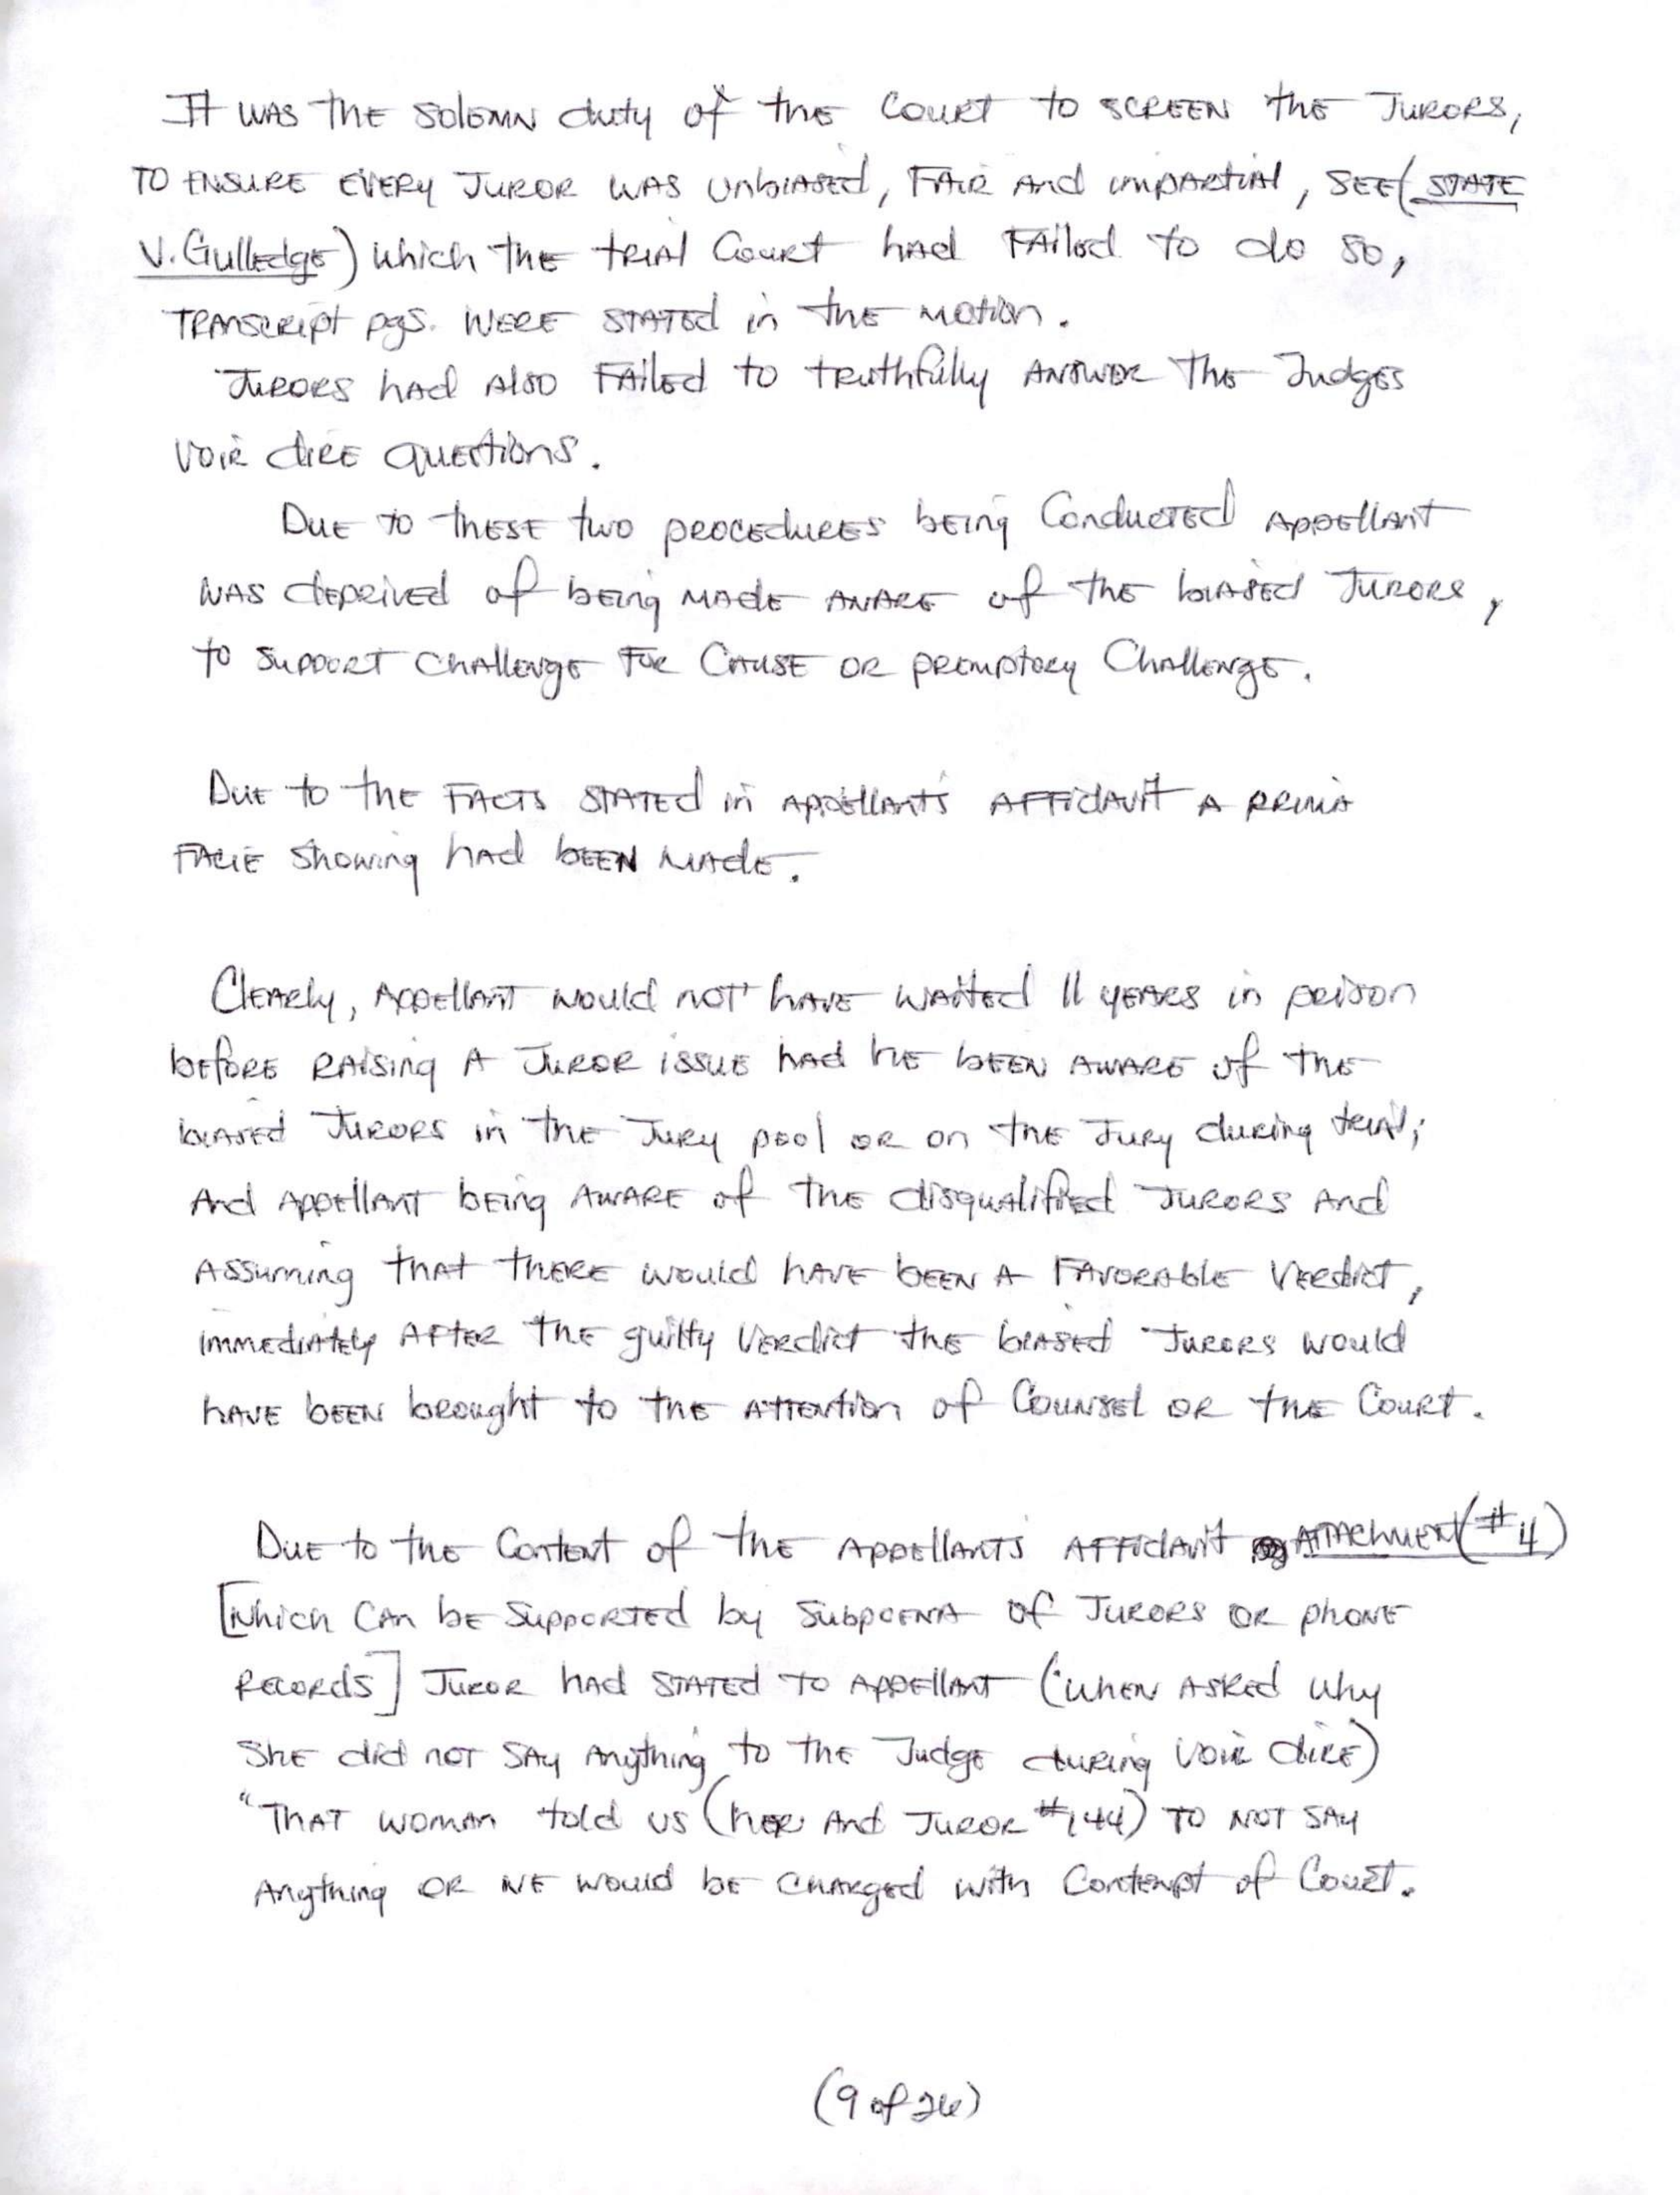 It was the solemn duty of the Court to screen the Jurors,
to ensure every Juror was unbiased, fair and impartial, see (State
v. Gulledge) which the trial Court had failed to do so,
transcript pgs. were stated in the motion.
Jurors had also failed to truthfully answer the Judges
voir dire questions.
Due to these two procedures being conducted appellant
was deprived of being made aware of the biased Jurors,
to support challenge for cause or premptory challenge.
Due to the facts stated in appellant's affidavit a prima
facie showing had been made.
Clearly, appellant would not have waited 11 years in prison
before raising a Juror issue had he been aware of the
biased Jurors in the Jury pool or on the Jury during trial;
and appellant being aware of the disqualified Jurors and
assuming that there would have been a favorable verdict,
immediately after the guilty verdict the biased Jurors would
have been brought to the attention of Counsel or the Court.
Due to the content of the appellants affidavit Attachment (#4)
[which can be supported by subpoena of Jurors or phone
records] Juror had stated to appellant (when asked why
she did not say anything to the Judge during voir dire)
"That woman told us (her and Juror #144) to not say
anything or we would be charged with Contempt of Court.
(9 of 26)